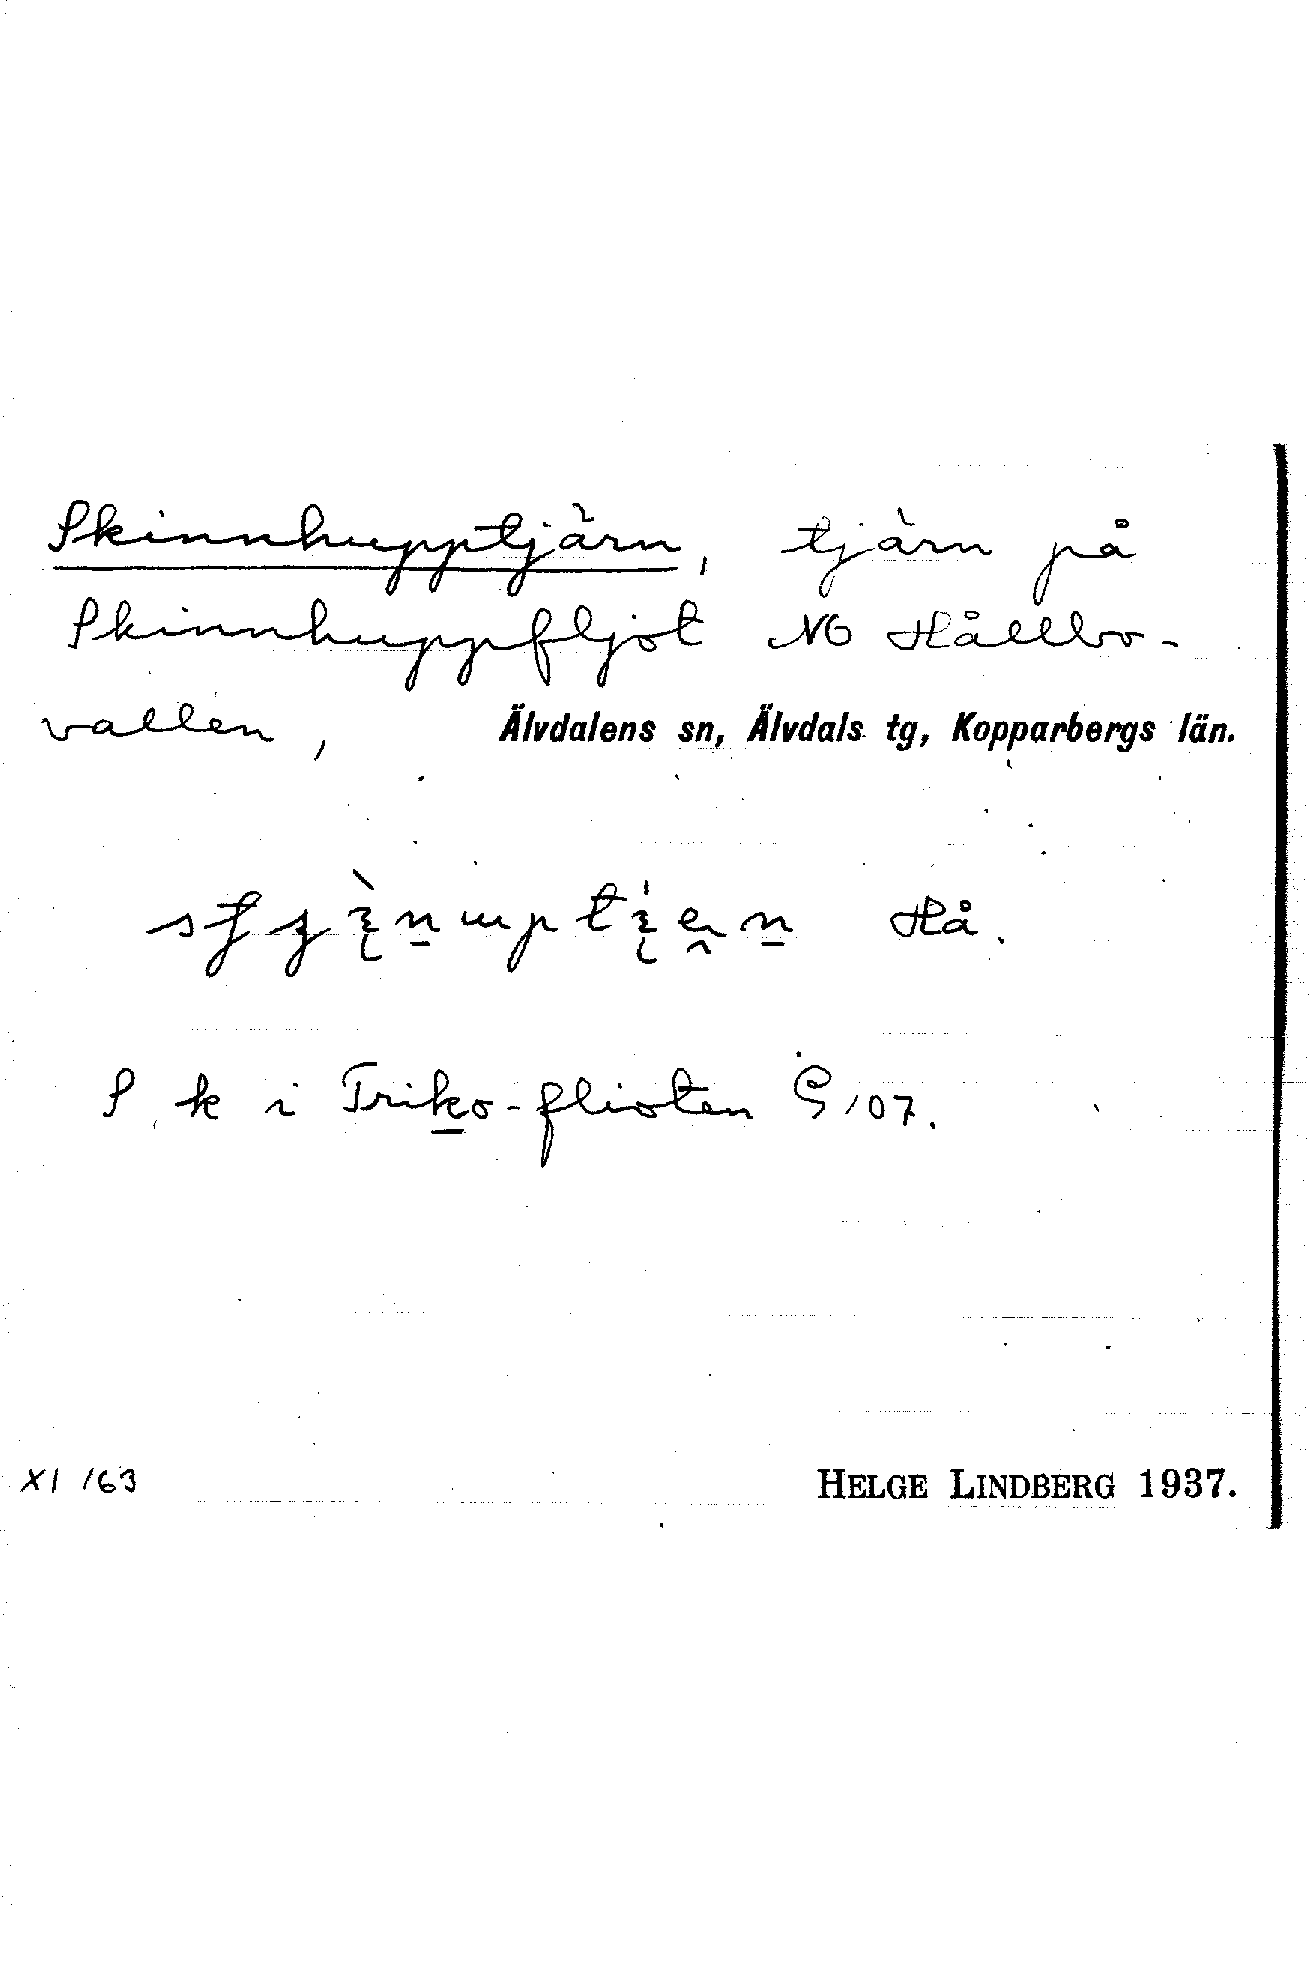 Skinnhupptjärn, tjärn på
Skinnhuppfljot NO Hållbo-
vallen, Älvdalens sn, Älvdals tg, Kopparbergs län.
Hå.
S k i Triko-flioten G 107.
XI 163 HELGE LINDBERG 1937.